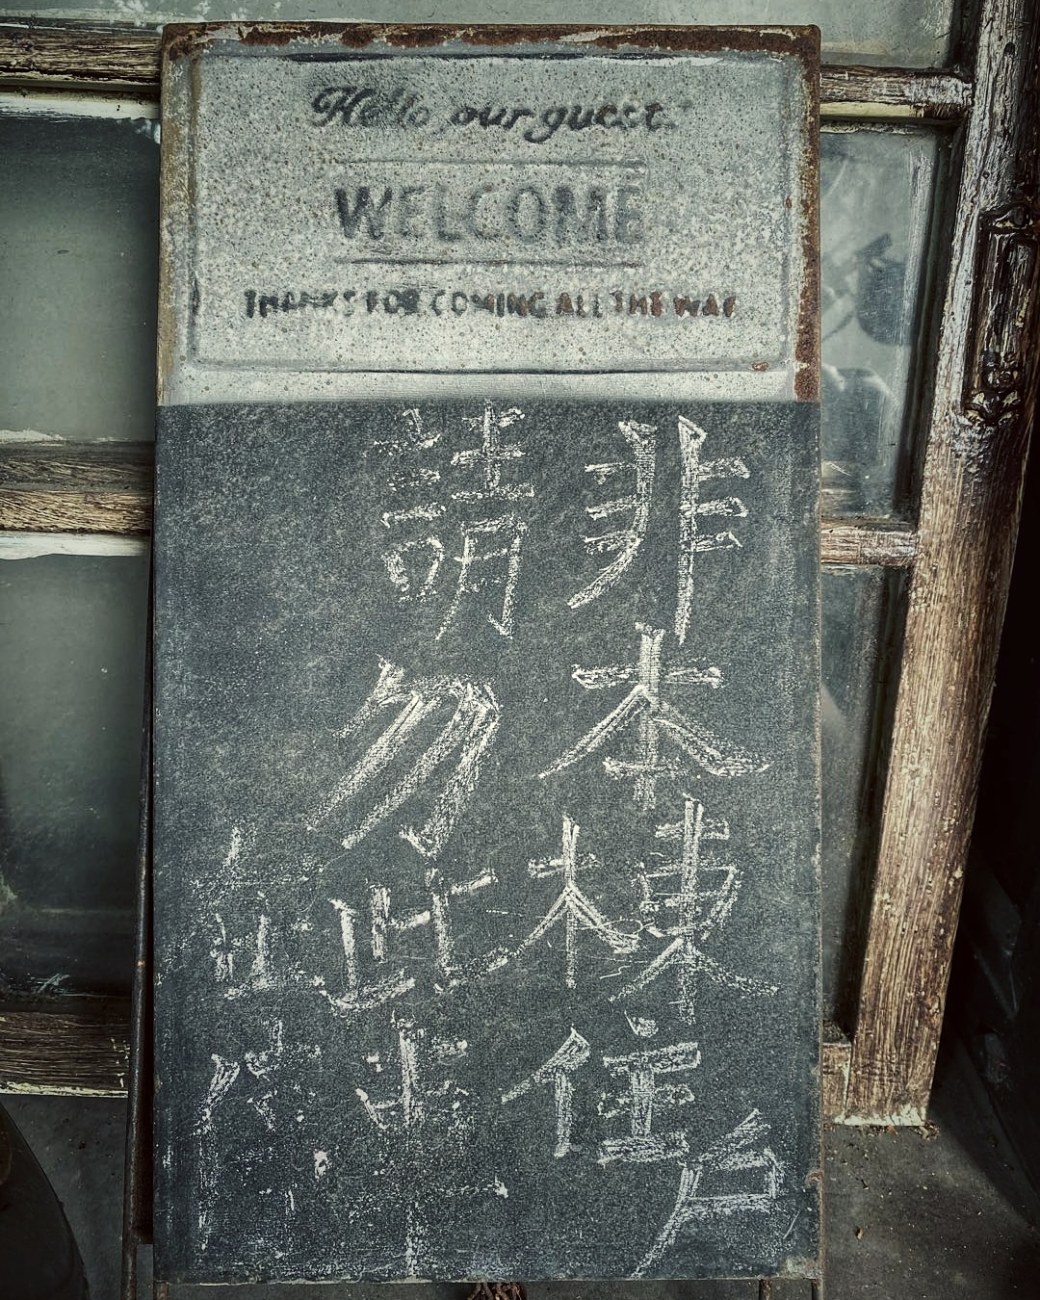 Hello our guest.
WELCOME
THANKS FOR COMING ALL THE WAY
非本棟住戶
請勿此